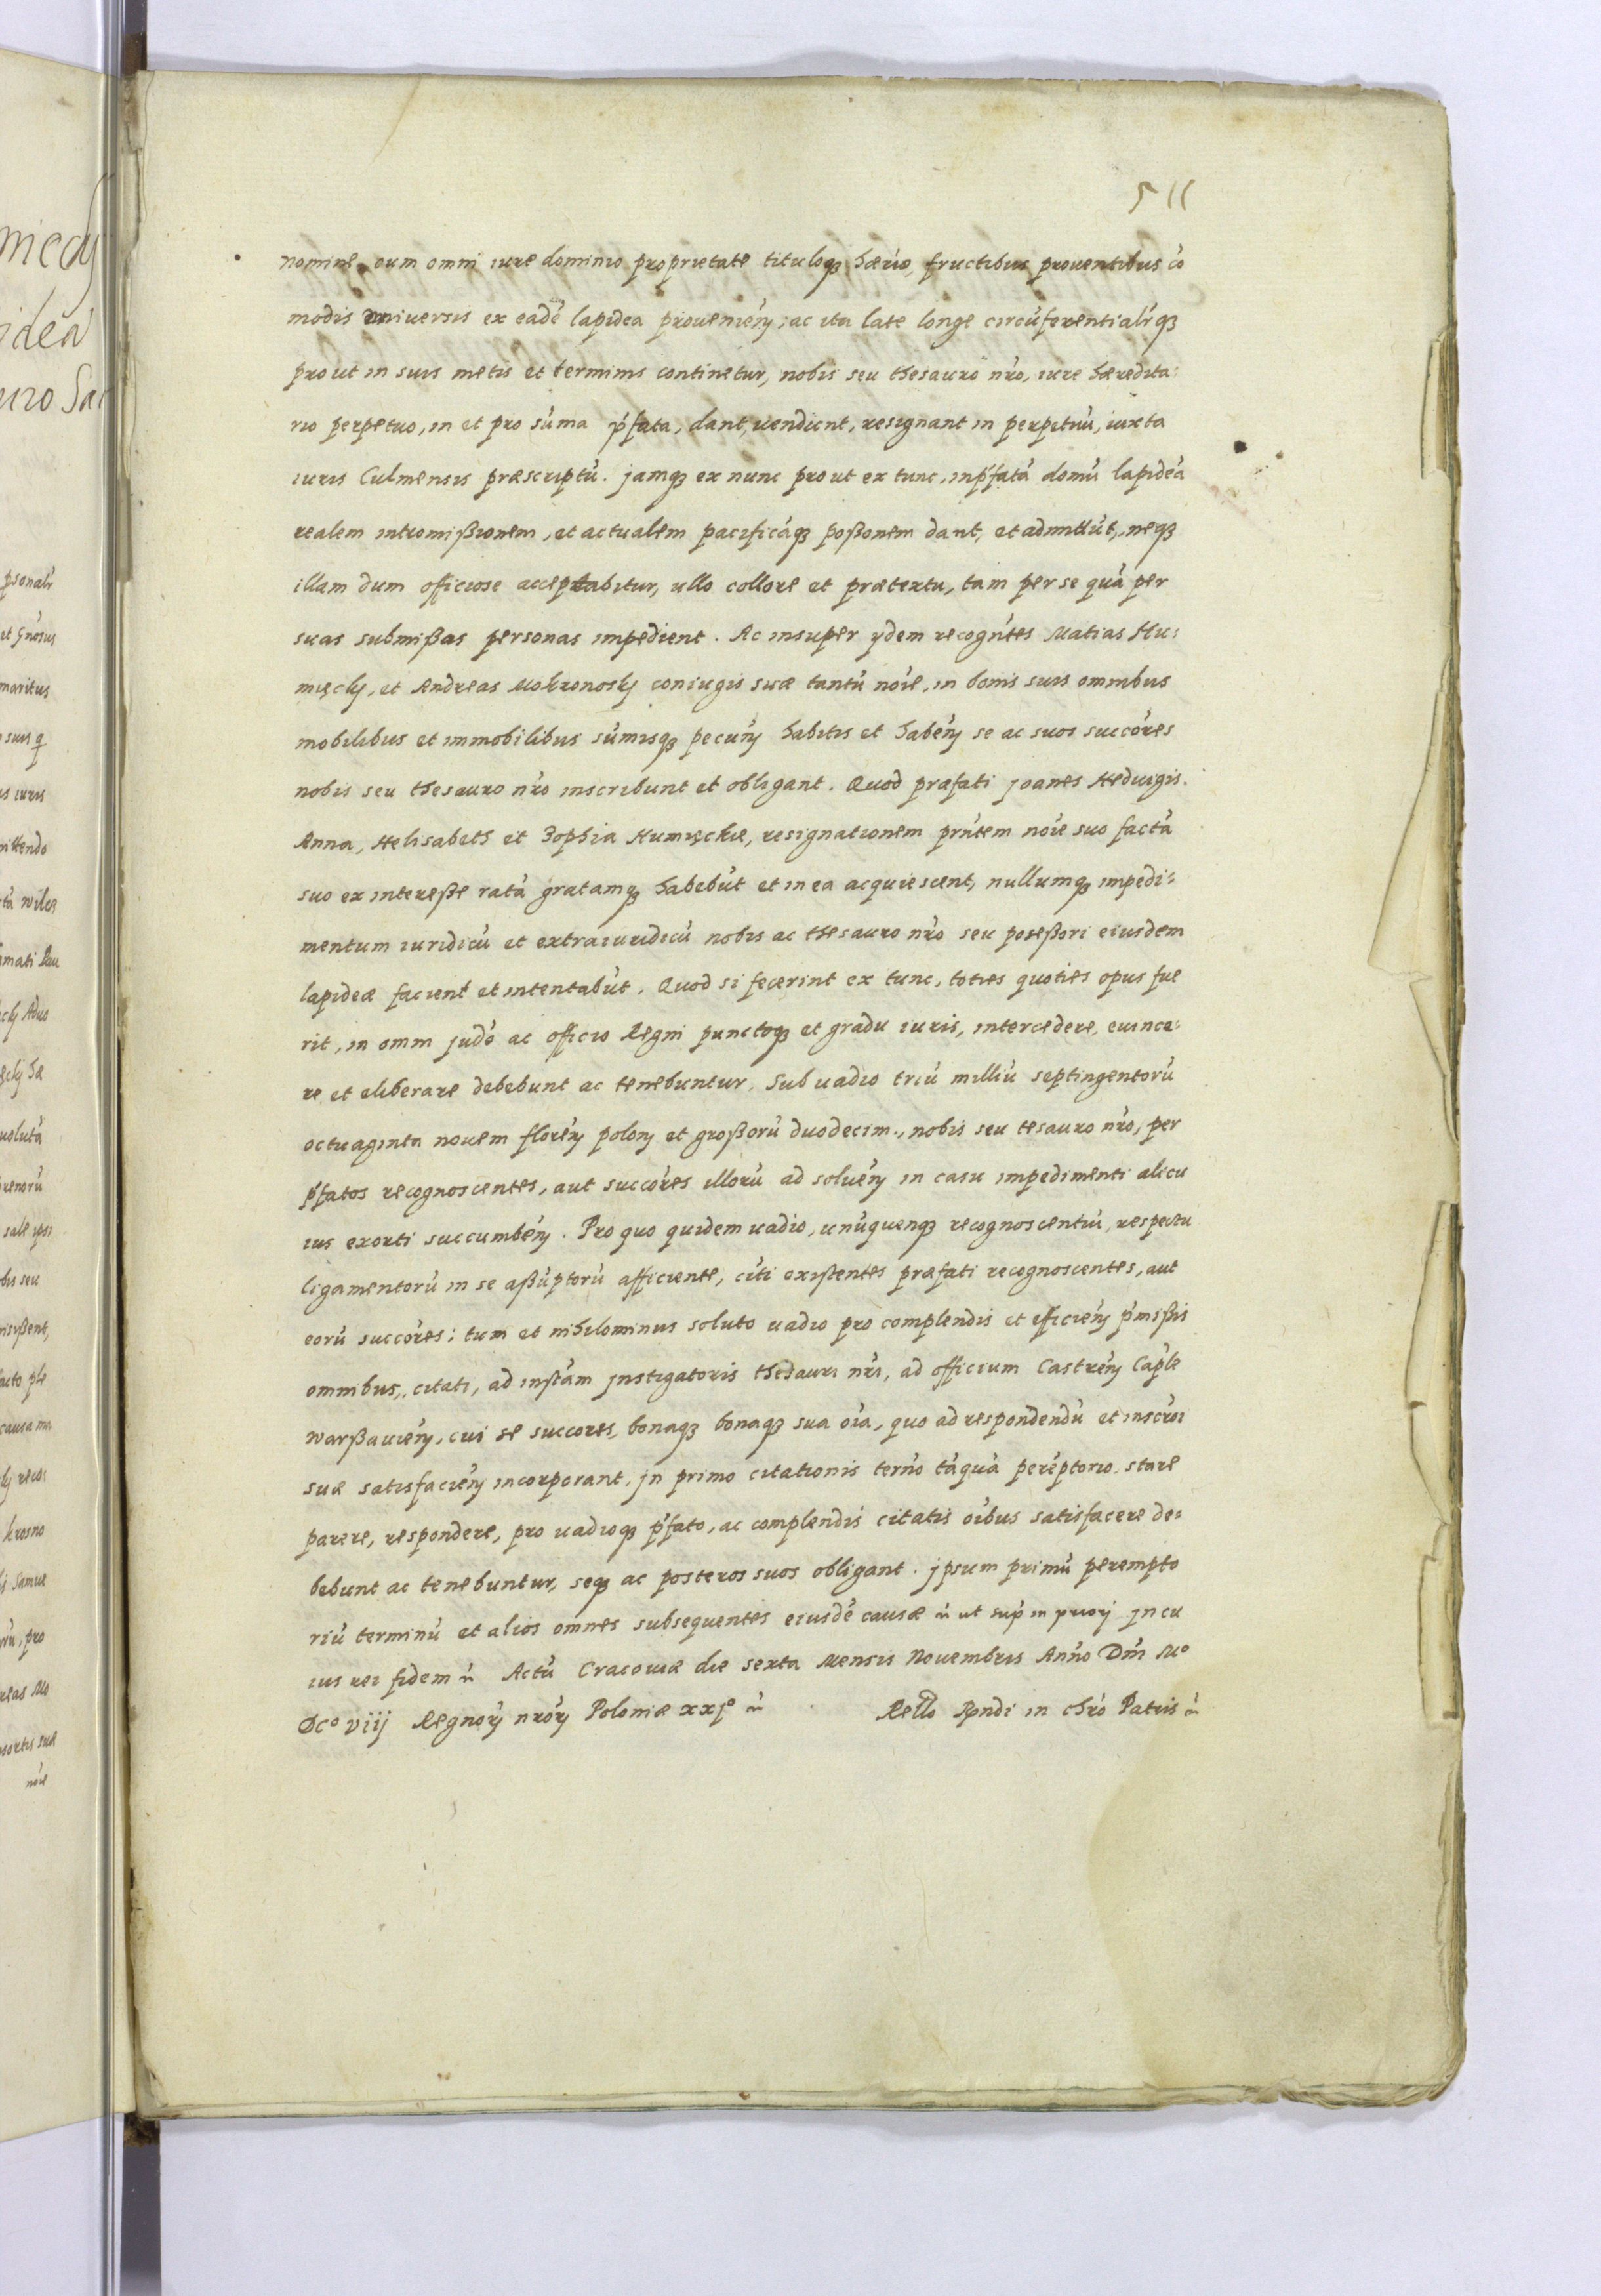 511
nomine, cum omni iure dominio proprietate tituloq3 hærio, fructibus prouentibus cõ
modis vniuersis ex eadẽ lapidea prouenieñ, ac ita late longe circũferentialr̃q3
prout in suis metis et terminis continetur, nobis seu thesauro nr̃o, iure hæredita:
rio perpetuo, in et pro sũma p̃fata, dant, vendunt, resignant in perpetuũ, iuxta
iuris Culmensis præscriptũ. jamq3 ex nunc prout ex tunc, in p̃fatã domũ lapideã
realem intromißionem, et actualem pacificãq3 poßonem dant, et admittũt, neq3
illam dum officiose acceptabitur, ullo collore et prætextu, tam per se quã per
suas submißas personas impedient. Ac insuper ydem recogñtes Matias Hu:
mięcky, et Andreas Mokronosky coniugis suæ tantũ noĩe, in bonis suis omnibus
mobilibus et immobilibus sũmisq3 pecuñ habitis et habeñ se ac suos succõres
nobis seu thesauro nr̃o inscribunt et obligant. Quod præfati joanes Heduigis.
Anna, Helisabeth et Zophia Humięckie, resignationem prñtem noĩe suo factã
suo ex intereße ratã gratamq3 habebũt et in ea acquiescent, nullumq3 impedi:
mentum iuridicũ et extraiuridicũ nobis ac thesauro nr̃o seu poseßori eiusdem
lapideæ facient et intentabũt. Quod si fecerint ex tunc, toties quoties opus fue
rit, in omni judõ ac officio Regni punctoq3 et gradu iuris, intercedere, euince:
re et eliberare debebunt ac tenebuntur, sub uadio triũ milliũ septingentorũ
octuaginta nouem floreñ polon̄ et großorũ duodecim., nobis seu tesauro nr̃o, per
p̃fatos recognoscentes, aut succõres illorũ ad solueñ in casu impedimenti alicu
ius exorti succumbeñ. Pro quo quidem uadio, unũquenq3 recognoscentiũ, respectu
ligamentorũ in se aßũptorũ afficiente, citi existentes præfati recognoscentes, aut
eorũ succõres; tum et nihilominus soluto uadio pro complendis et efficieñ p̃mißis
omnibus, citati, ad instãm jnstigatoris thesauri nr̃i, ad officium Castreñ Cap̃le
warßauieñ, cui se succores, bonaq3 bonaq3 sua oĩa, quo ad respondendũ et inscr̃oi
suæ satisfacieñ incorporant, jn primo citationis terño tãquã perẽptorio, stare
parere, respondere, pro uadioq3 p̃fato, ac complendis citatis oĩbus satisfacere de:
bebunt ac tenebuntur, seq3 ac posteros suos obligant. jpsum primũ perempto
riũ terminũ et alios omnes subsequentes eiusdẽ causæ ut sup̃ in priorj jn cu
ius rei fidem Actũ Cracouiæ die sexta Mensis Nouembris Anño Dm̃ Mº
Dcº viij Regnor̃ nr̃or̃ Poloniæ xxjº Rello Rõndi in chr̃o Patris